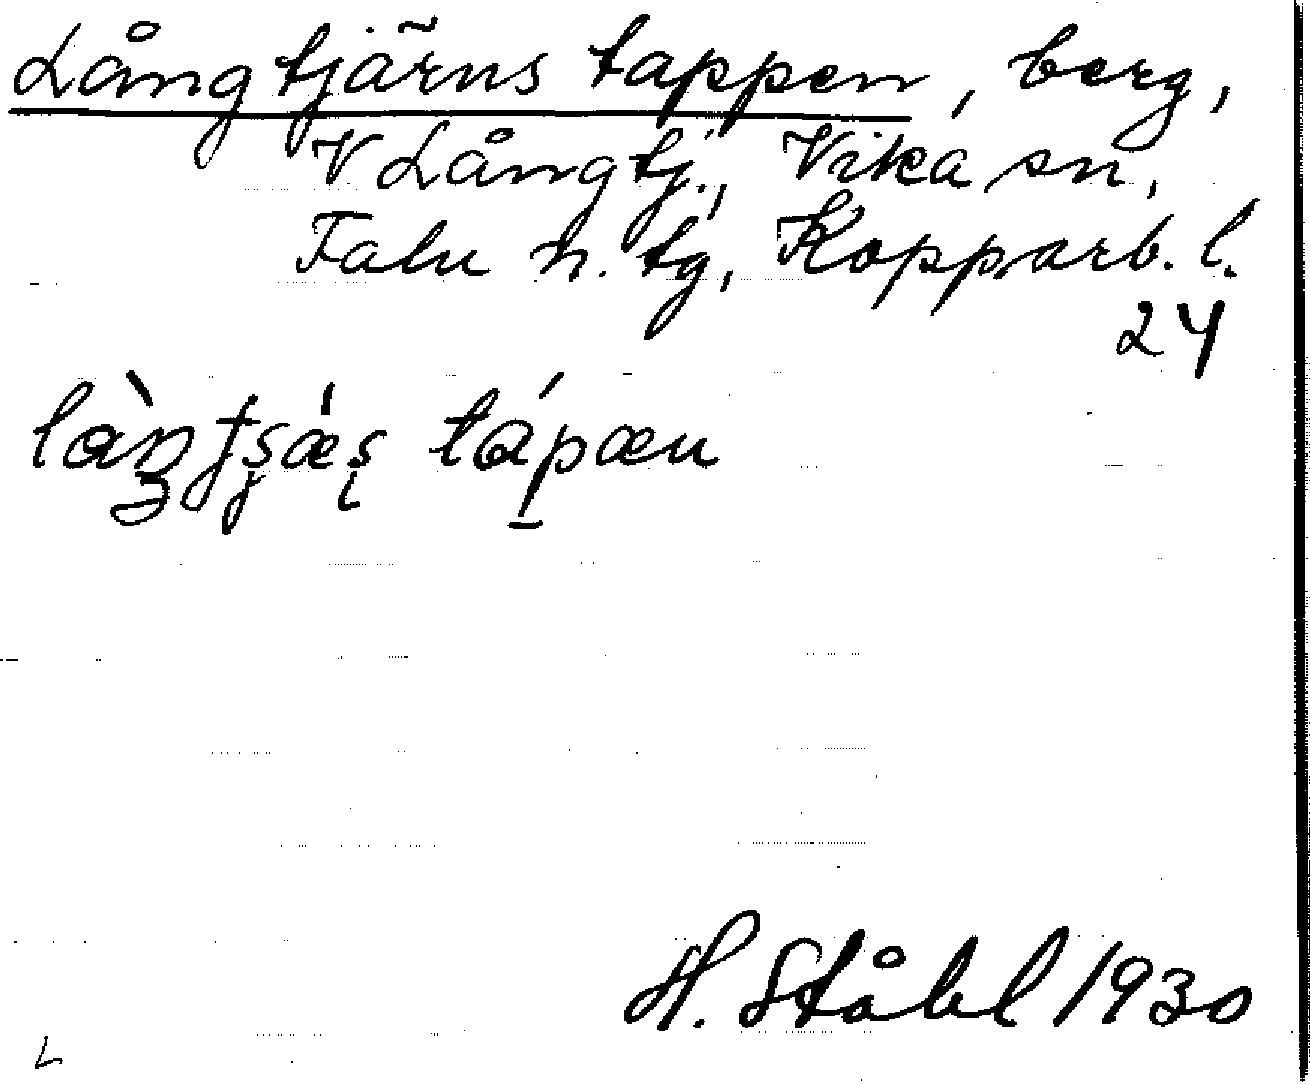 Långtjärns tappen, berg,
V Långtj., Vika sn,
Falu n. tg, Kopparb. l.
24
H. Ståhl 1930
L